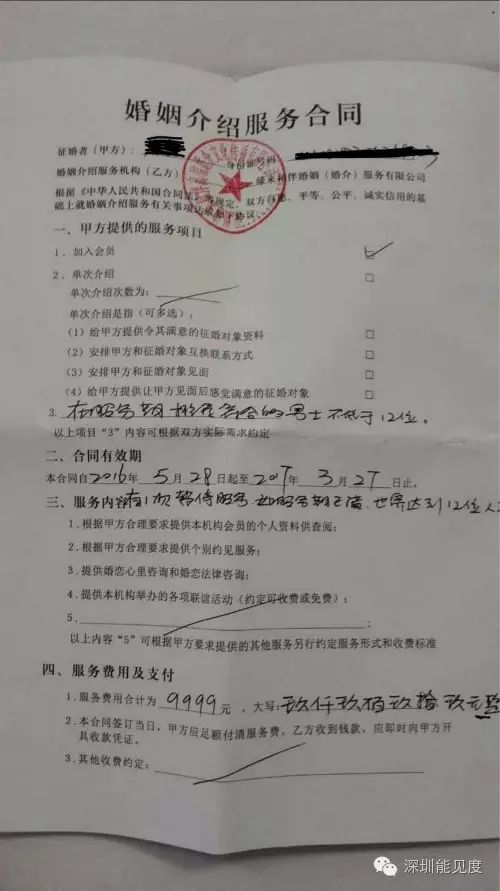 婚姻介绍服务合同
征婚者（甲方）： 身份证号码
婚姻介绍服务机构（乙方） 缘来相伴婚姻（婚介）服务有限公司
根据《中华人民共和国合同法》等规定，双方自愿、平等、公平、诚实信用的基
础上就婚姻介绍服务有关事项达成如下协议：
一、甲方提供的服务项目
1．加入会员
2．单次介绍
单次介绍次数为：
单次介绍是指（可多选）：
（1）给甲方提供令其满意的征婚对象资料
（2）安排甲方和征婚对象互换联系方式
（3）安排甲方和征婚对象见面
（4）给甲方提供让甲方见面后感觉满意的征婚对象
3．在服务期推荐合格的男士不低于12位。
以上项目“3”内容可根据双方实际需求约定
二、合同有效期
本合同自2016年5月28日起至2017年3月27日止。
三、服务内容 有1次暂停服务 服务期已满 达到12位人
1．根据甲方合理要求提供本机构会员的个人资料供查阅；
2．根据甲方合理要求提供个别约见服务；
3．提供婚恋心里咨询和婚恋法律咨询；
4．提供本机构举办的各项联谊活动（约定可收费或免费）；
5．
以上内容“5”可根据甲方要求提供的其他服务另行约定服务形式和收费标准
四、服务费用及支付
1．服务费用合计为9999元，大写：玖仟玖佰玖拾玖元整
2．本合同签订当日，甲方应足额付清服务费，乙方收到钱款，应即时向甲方开
具收款凭证。
3．其他收费约定：
深圳能见度